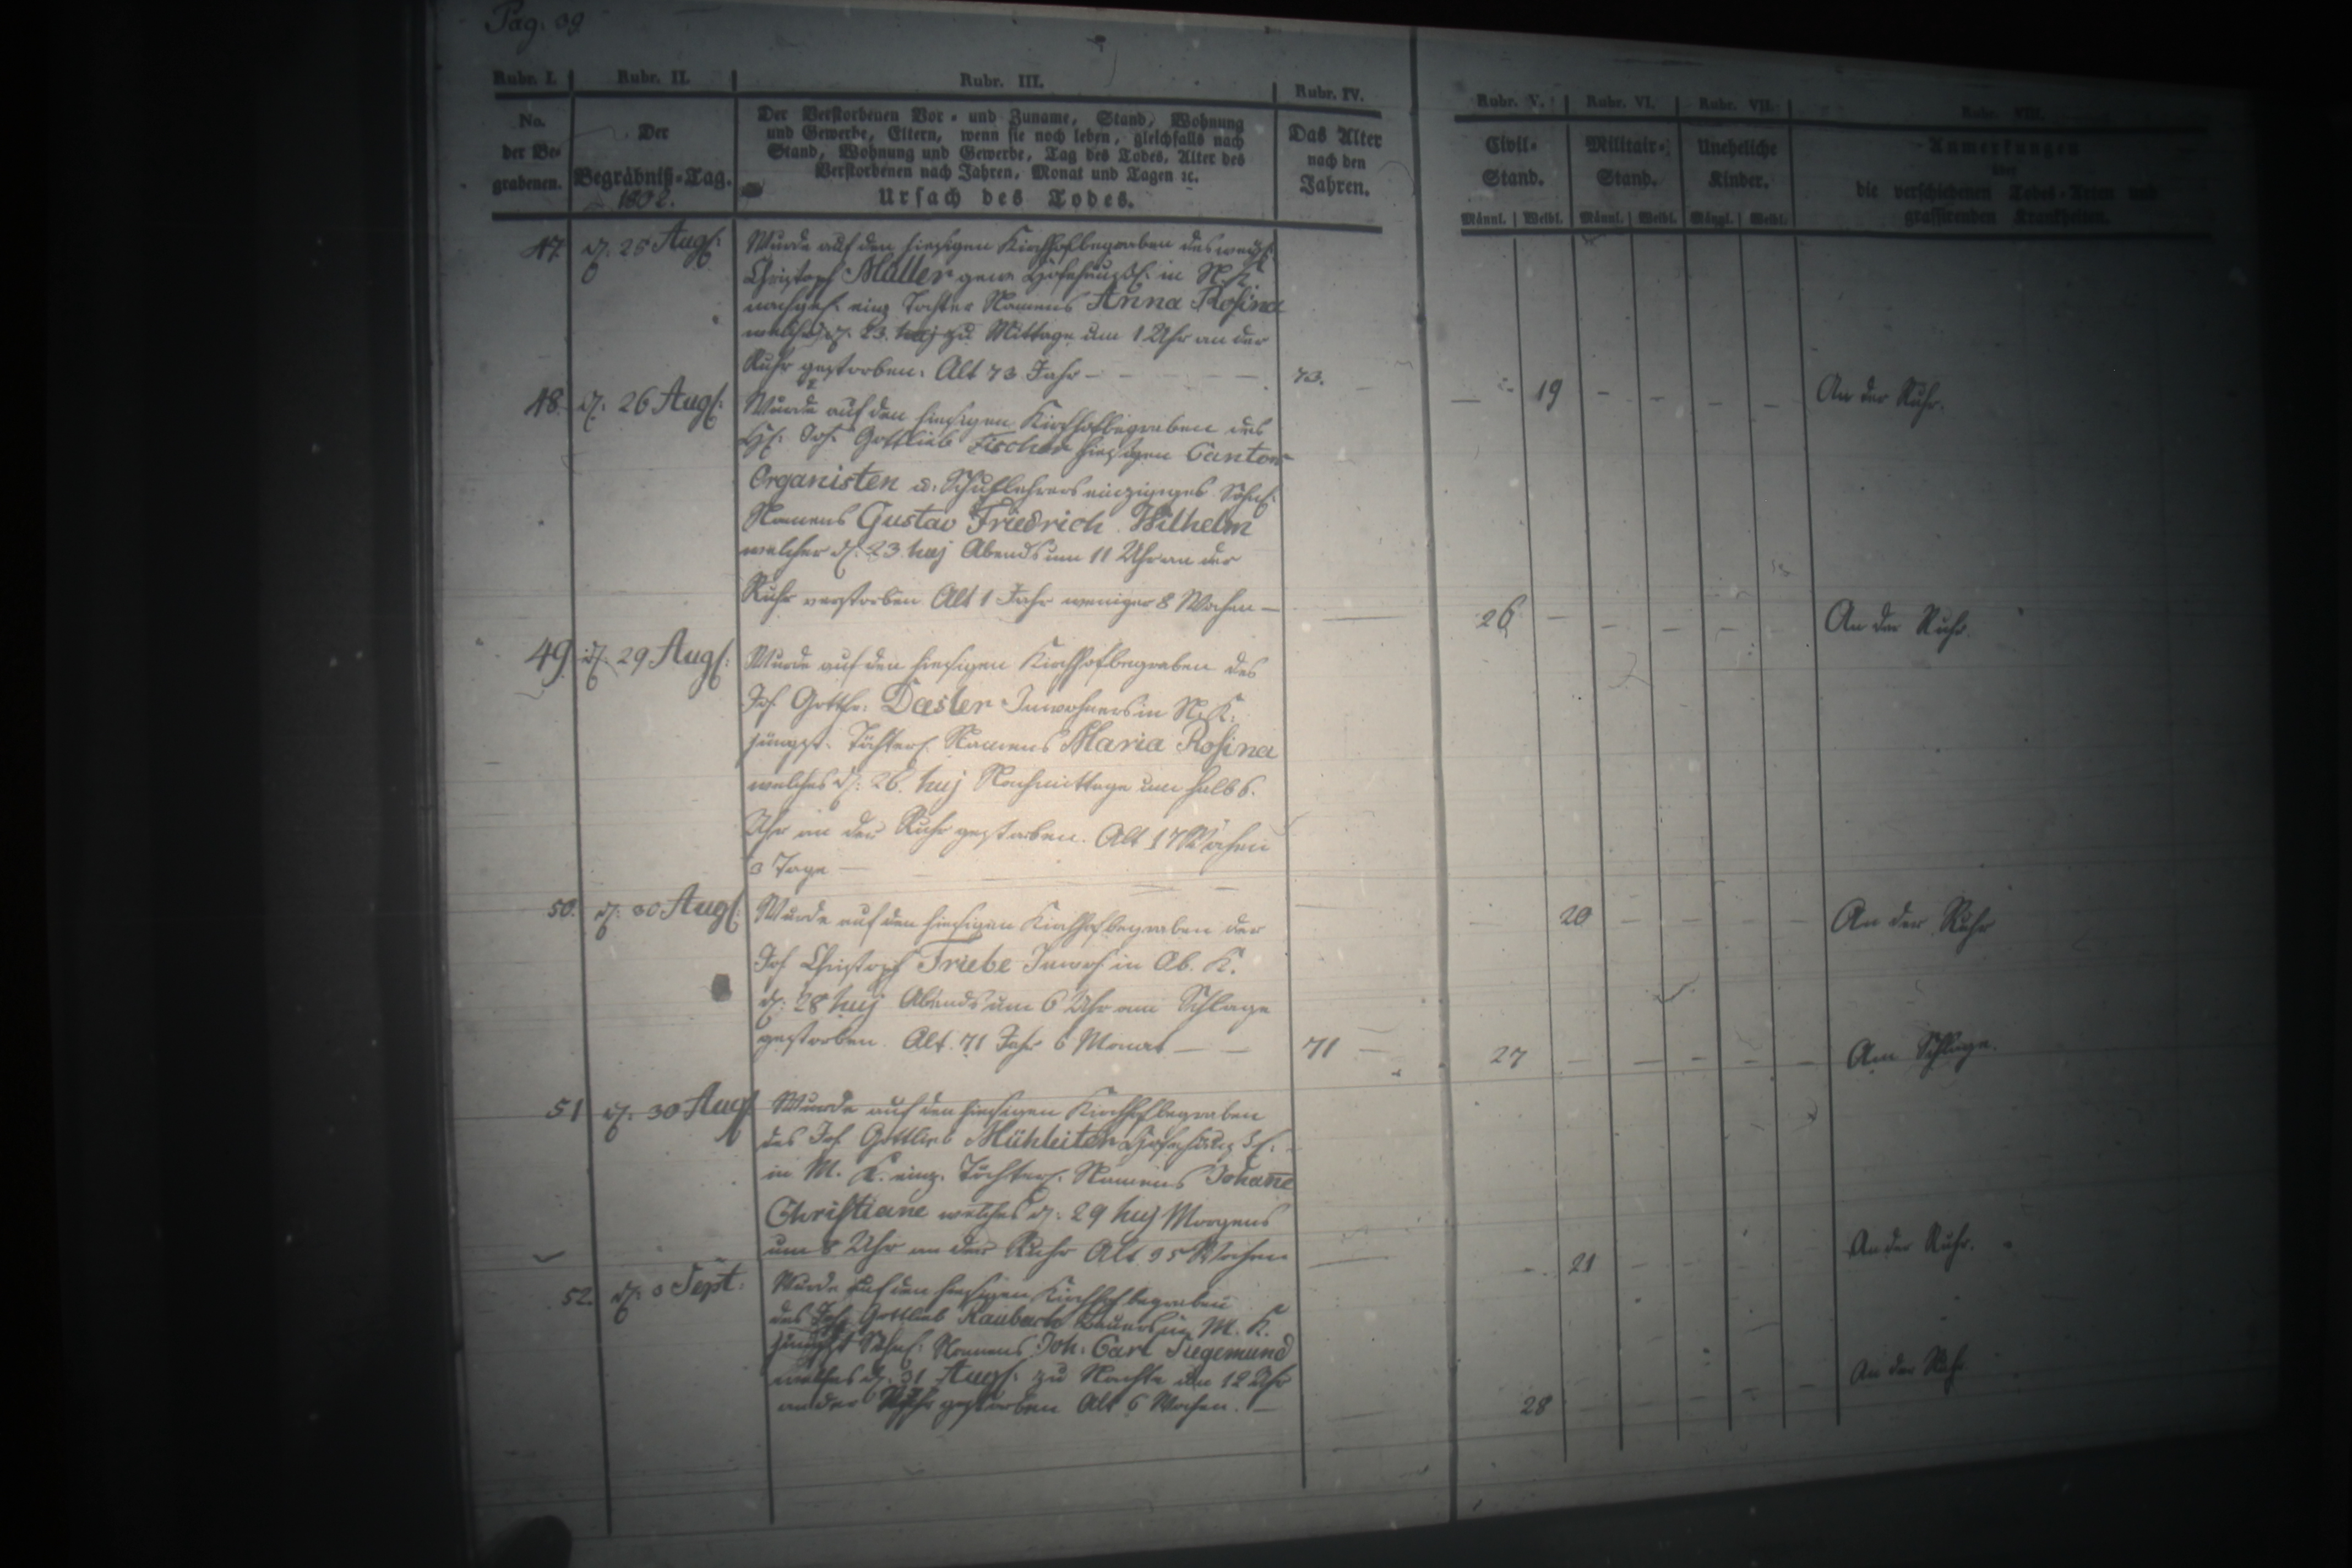 Pag: 39
Rubr. I. Rubr. II. Rubr. III. Rubr. IV. Rubr. V. Rubr. VI. Rubr. VII. Rubr. VIII.
No. der Be- grabenen.
Der Begräbniß-Tag.
Der Verstorbenen Vor- und Zuname, Stand, Wohnung
und Gewerbe, Eltern, wenn sie noch leben, gleichfalls nach
Stand, Wohnung und Gewerbe, Tag des Todes, Alter des
Verstorbenen nach Jahren, Monat und Tagen ꝛc.
Ursach des Todes.
Das Alter nach den Jahren.
Civil- Stand.
Militair- Stand.
Uneheliche Kinder.
Anmerkungen
über
die verschiedenen Todes-Arten und
grassirenden Krankheiten.
Männl. Weibl. Männl. Weibl. Männl. Weibl.
47. d. 25 Aug:
Wurde auf den hiesigen Kirchhof begraben des weyl:
Christoph Müller gew. in N. K.
einz Tochter Namens Anna Rosina
welche d. 23. huj zu Mittage um 1 Uhr an der
Ruhr gestorben. Alt 73 Jahr — 73. 19 An der Ruhr.
48. d. 26 Aug:
Wurde auf den hiesigen Kirchhof begraben des
H: Joh. Gottlieb Fischer hiesigen Cantor
Organisten u. Schullehrers einziges Söhnl:
Namens Gustav Friedrich Wilhelm
welcher d. 23. huj Abends um 11 Uhr an der
Ruhr verstorben Alt 1 Jahr weniger 8 Wochen — 26 An der Ruhr.
49. d. 29 Aug:
Wurde auf den hiesigen Kirchhof begraben des
Joh Gottfr: Dasler Inwohners in N. K.
jüngst. Töchterl. Namens Maria Rosina
welches d: 26. huj Nachmittage um halb 6.
Uhr an der Ruhr gestorben. Alt 17 Wochen
3 Tage — 20 An der Ruhr
50. d: 30 Aug:
Wurde auf den hiesigen Kirchhof begraben der
Joh Christoph Triebe Inwoh in Ob. K.
d: 28 huj Abends um 6 Uhr am Schlage
gestorben. Alt. 71 Jahr 6 Monat — 71 27 Am Schlage.
51 d. 30 Aug
Wurde auf den hiesigen Kirchhof begraben
des Joh Gottlieb Mühleiter
in M. K. einz. Töchterl. Namens Johane
Christiane welches d: 29 huj Morgens
um 8 Uhr an der Ruhr Alt 95 Wochen 21 An der Ruhr.
52. d: 3 Sept:
Wurde auf den hiesigen Kirchhof begraben
des Joh Gottlieb Raubach Bauers in M. K.
jüngst Söhnl: Namens Joh: Carl Siegemund
welches d. 31 Aug: zu Nachts um 12 Uhr
an der Ruhr gestorben Alt 6 Wochen. — 28 An der Ruhr